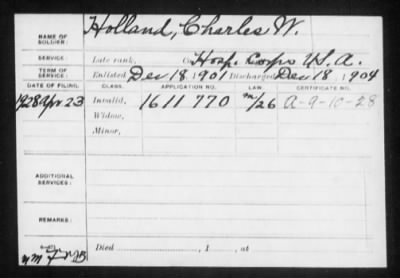 NAME OF SOLDIER: Holland, Charles W.
SERVICE: Late rank, Co. Hosp. Corps U.S.A.
TERM OF SERVICE: Enlisted Dec 18, 1901 Discharged Dec 18, 1904
DATE OF FILING. CLASS. APPLICATION NO. LAW. CERTIFICATE NO.
1928 Apr 23 Invalid, 1611770 m/26 A-9-10-28
Widow,
Minor,
ADDITIONAL SERVICES:
REMARKS:
Died , 1 , at